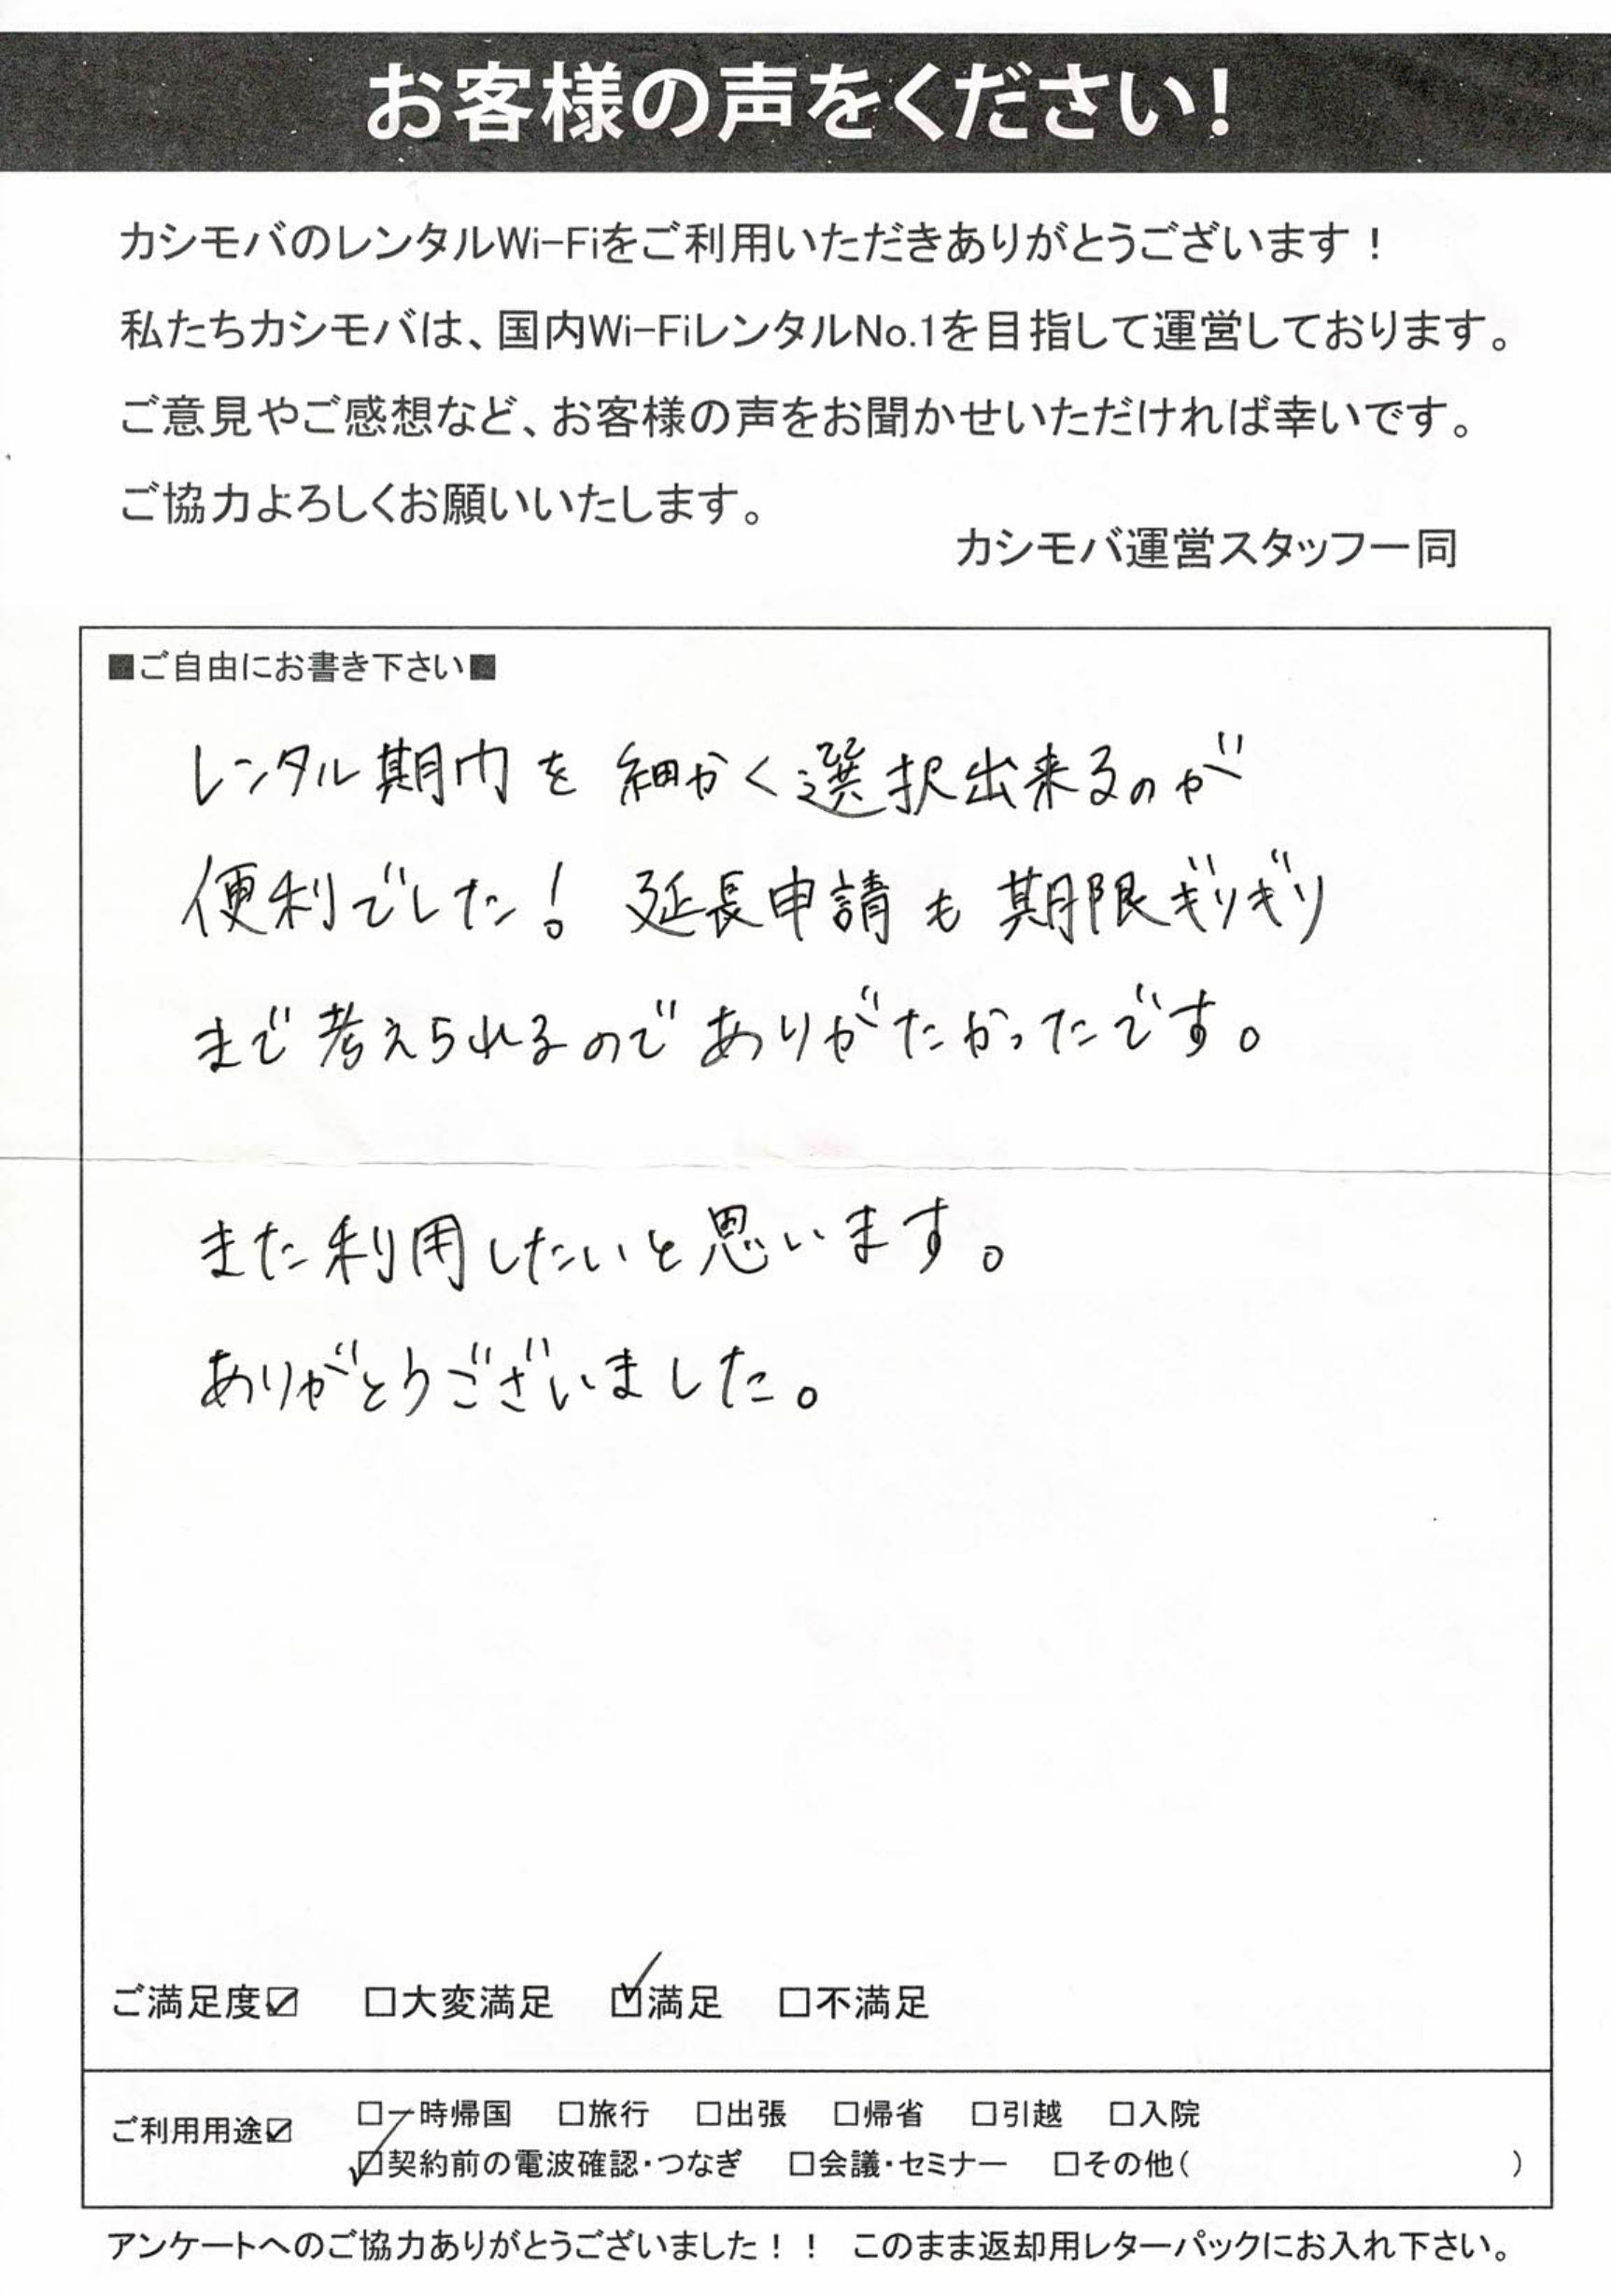 お客様の声をください!
カシモバのレンタルWi-Fiをご利用いただきありがとうございます！
私たちカシモバは、国内Wi-FiレンタルNo.1を目指して運営しております。
ご意見やご感想など、お客様の声をお聞かせいただければ幸いです。
ご協力よろしくお願いいたします。
カシモバ運営スタッフ一同
■ご自由にお書き下さい■
レンタル期間を細かく選択出来るのが
便利でした! 延長申請も期限ぎりぎり
まで考えられるのでありがたかったです。
また利用したいと思います。
ありがとうございました。
ご満足度☑ □大変満足 ☑満足 □不満足
ご利用用途☑ □一時帰国 □旅行 □出張 □帰省 □引越 □入院
☑契約前の電波確認・つなぎ □会議・セミナー □その他( )
アンケートへのご協力ありがとうございました！！ このまま返却用レターパックにお入れ下さい。